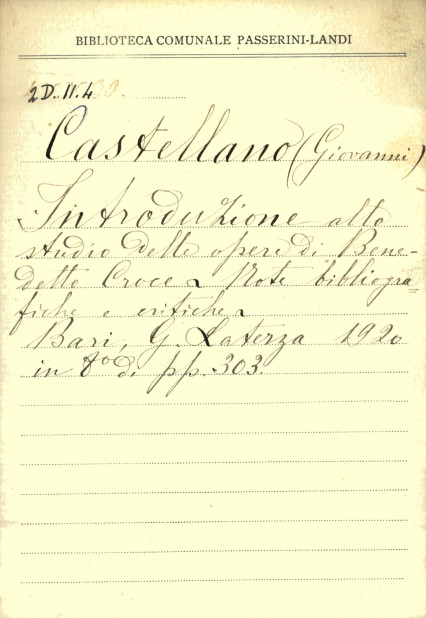 BIBLIOTECA COMUNALE PASSERINI-LANDI
2D.II.4
Castellano (Giovanni)
Introduzione allo
studio delle opere di Bene-
detto Croce ~ Note bibliogra-
fiche e critiche ~
Bari, G. Laterza 1920
in 8º di pp. 303.